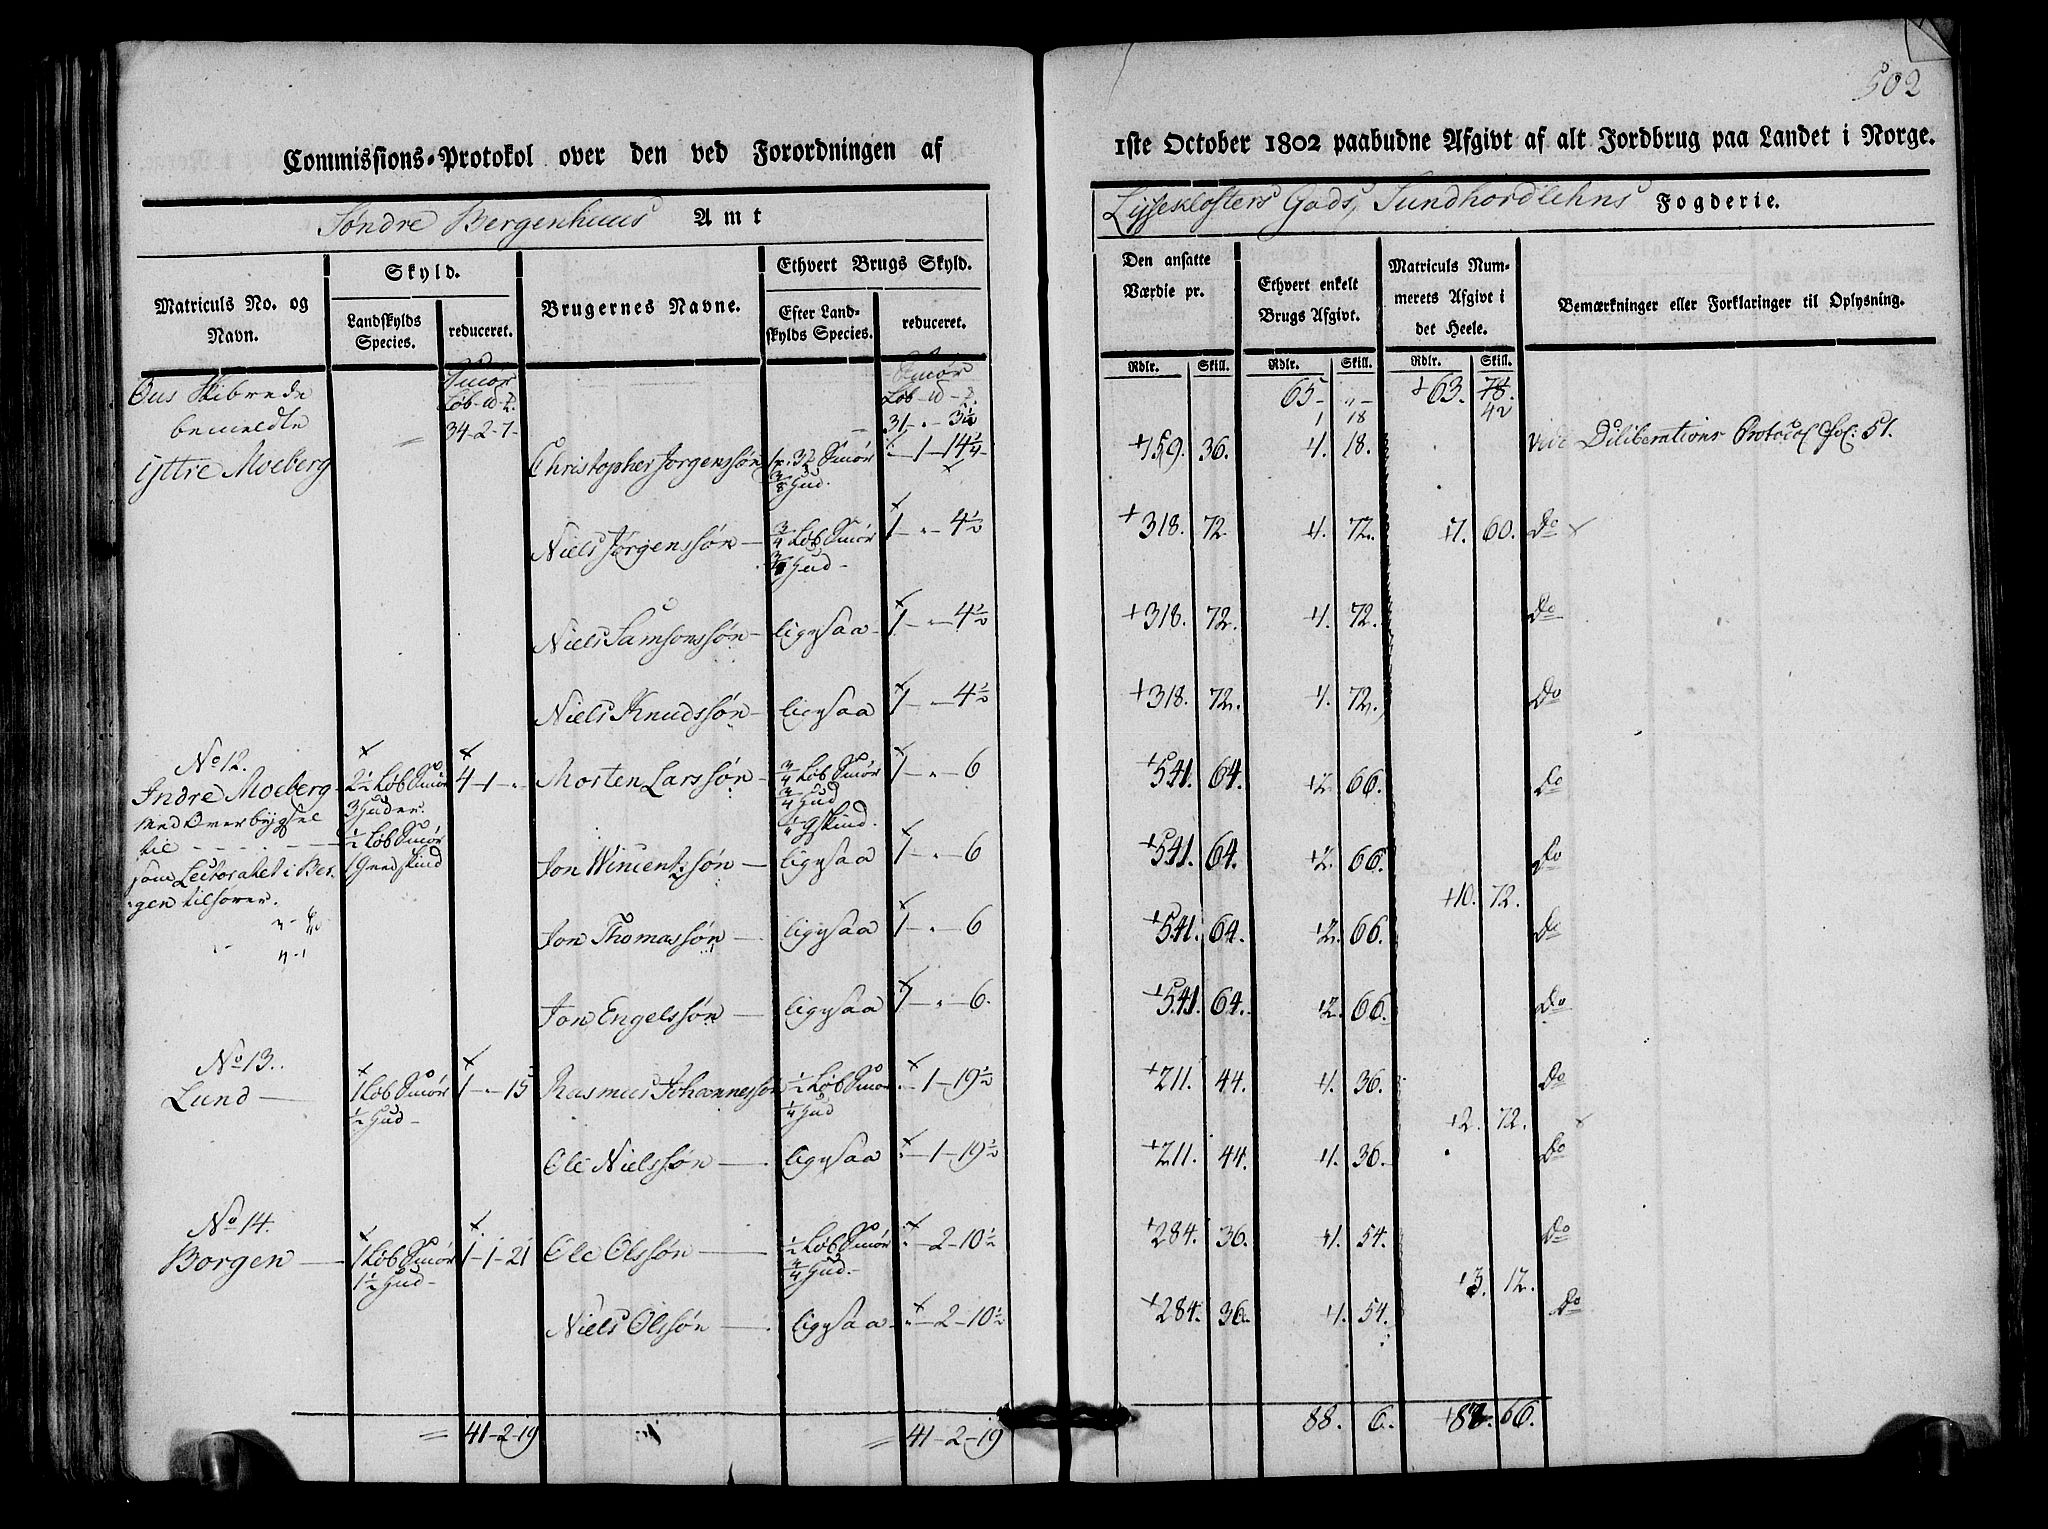 502
Commissions-Protokol over den ved Forordningen af
1ste October 1802 paabudne Afgivt af alt Jordbrug paa Landet i Norge.
Søndre Bergenhuus Amt
Lyseklosters Gods, Sundhordlehns Fogderie.
Matriculs No. og Navn.
Skyld.
Landskylds Species.
reduceret.
Brugernes Navne.
Ethvert Brugs Skyld.
Efter Landskylds Species.
reduceret.
Den ansatte Værdie pr.
Ethvert enkelt Brugs Afgivt.
Matriculs Nummerets Afgivt i det Heele.
Bemærkninger eller Forklaringer til Oplysning.
Rdlr. Skill. Rdlr. Skill. Rdlr. Skill.
Ous Skibrede
bemeldte
Smør
Løb
34-2-7-
Smør
Løb
31-"-3½
65- "- +63. 78.
1 18 42
Yttre Moeberg Christopher Jørgenssøn
Smør
3/8 Hud.
"-1-14¼
+159. 36. 1. 18. vide Deliberations Protocol Fol: 51.
Niels Jørgenssøn - 3/4 Løb Smør 1-"-4½ +318. 72. 1. 72. +7. 60. Do
3/4 Hud-
Niels Samsonssøn - ligesaa - 1-"-4½ +318. 72. 1. 72. Do
Niels Knudssøn - ligesaa 1-"-4½ +318. 72. 1. 72. Do
No 12.
Indre Moeberg - 2½ Løb Smør 4-1-" Morten Larssøn - 3/4 Løb Smør 1-"-6 +541. 64. +2. 66. Do
med Overbygsel 3 Huder. 3/4 Hud
til - - - - ½ Løb Smør ¼ Gskind.
som Lectoratet i Ber- 1 Geedskind Jon Wincentzsøn - ligesaa 1-"-6 +541. 64. +2. 66. Do
gen tilhører.
+10. 72.
Jon Thomassøn - ligesaa 1-"-6 +541. 64. +2. 66. Do
Jon Engelssøn - ligesaa 1-"-6. +541. 64. +2. 66. Do
No 13.
Lund - 1 Løb Smør 1-"-15 Rasmus Johannessøn ½ Løb Smør "-1-19½ +211. 44. 1. 36. Do
½ Hud- ¼ Hud
+2. 72.
Ole Nielssøn - ligesaa "-1-19½ +211. 44. 1. 36. Do
No 14.
Borgen - 1 Løb Smør 1-1-21 Ole Olssøn - ½ Løb Smør "-2-10½ +284. 36. 1. 54. Do
1½ Hud- Hud.-
+3. 12.
Niels Olssøn - ligesaa - "-2-10½ +284. 36. 1. 54. Do
= 41-2-19 = 41-2-19 88. 6. 66.